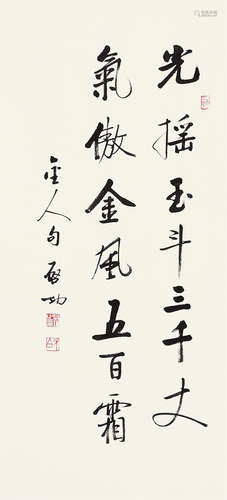 光摇玉斗三千丈
氣傲金風五百霜
金人句 啓功